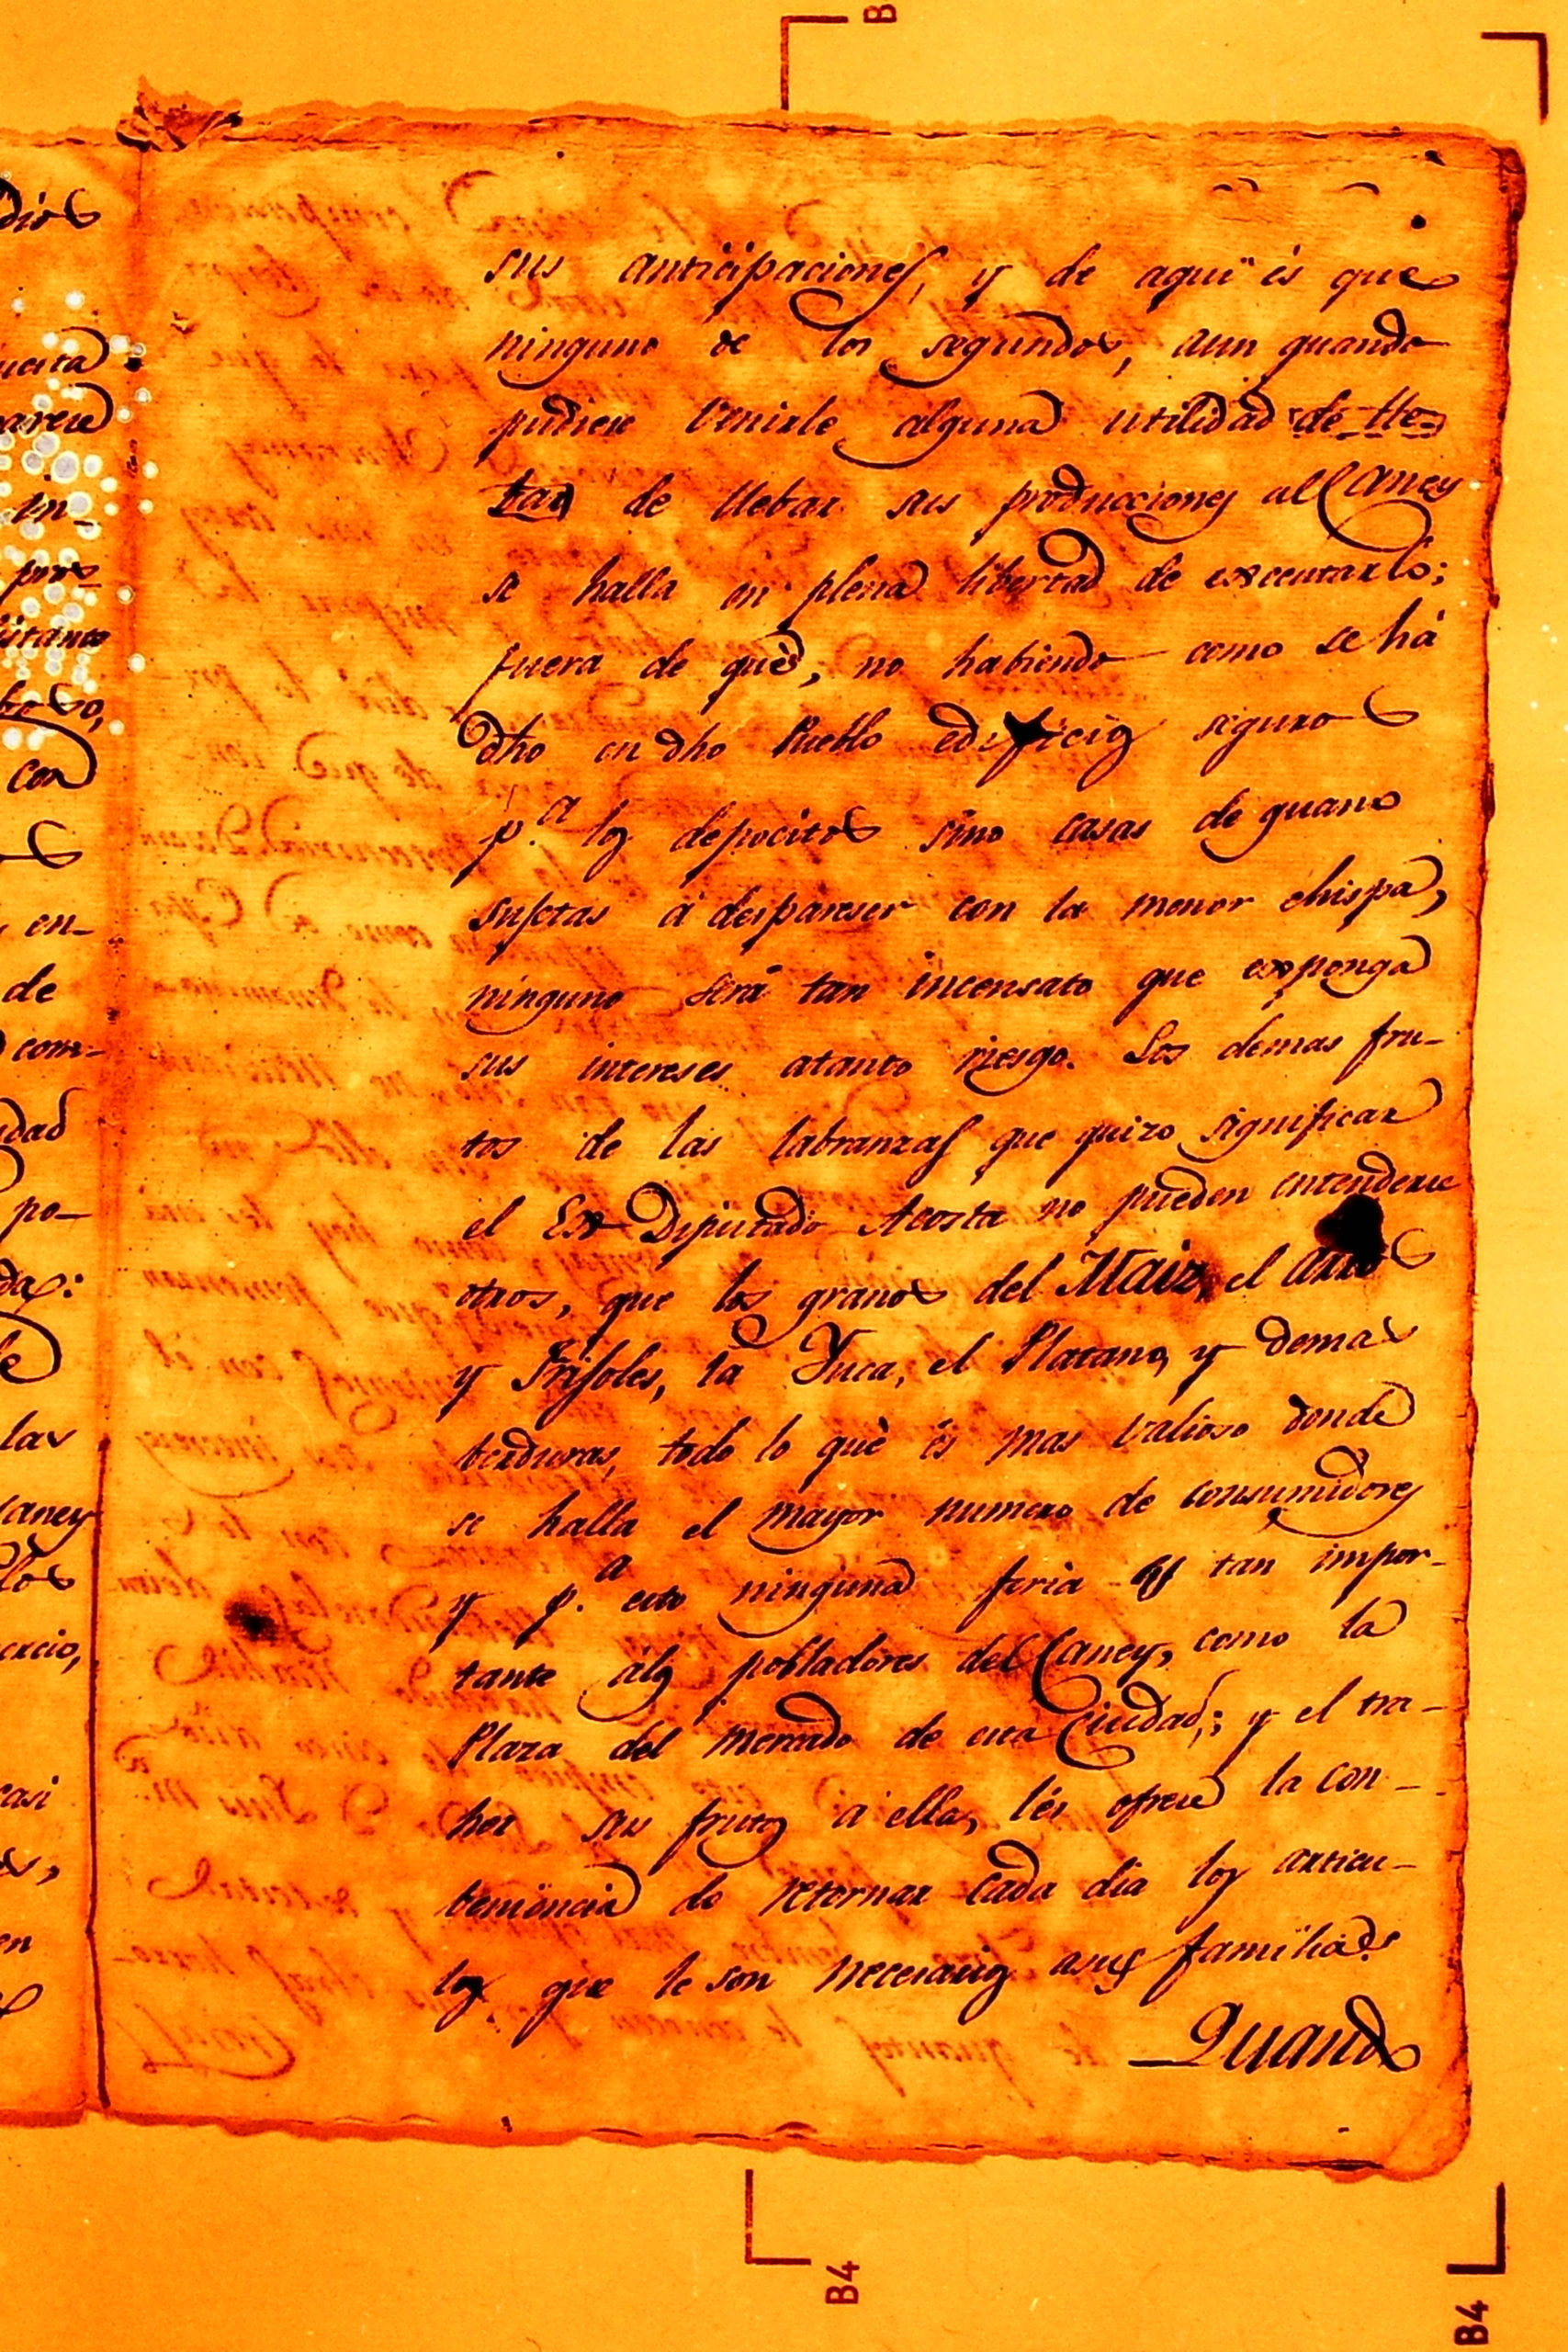 sus anticipaciones, y de aqui és que
ninguno de los segundos, aun quando
pudiere venirle alguna utilidad de lle-
tar de llebar sus producciones al Caney
se halla en plena libertad de execcutarlo;
fuera de què, no habiendo como se há
dho en dho Pueblo edificios siguros
p.ª los depocitos sino casas de guano
sujetas á despareser con la menor chispa,
ninguno será tan incensato que exponga
sus intereses atanto riesgo. Los demas fru-
tos de las labranzas que quizo significar
el Ex Diputado Acosta no pueden entenderse
otros, que los granos del Maiz, el Arros
y Frisoles, la Yuca, el Platano, y demas
berduras, todo lo què és mas valioso donde
se halla el mayor numero de consumidores
y p.ª esto ninguna feria es tan impor-
tante álos pobladores del Caney, como la
Plaza del mercado de esta Ciudad; y el tra-
her sus frutos á ella, lés ofrece la con-
beniencia de retornar cada dia los articu-
los que le son necesarios asus familias.
Quando
dios
en-
de
com-
po-
las
Caney
los
casi
en
con
in-